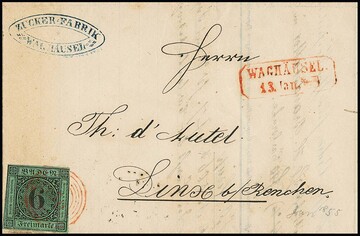 ZUCKER-FABRIK
WAGHÄUSEL
WAGHÄUSEL.
13. Jan.
Herrn
Th: d'Autel
Linx b/Renchen
BADEN
6
Freimarke